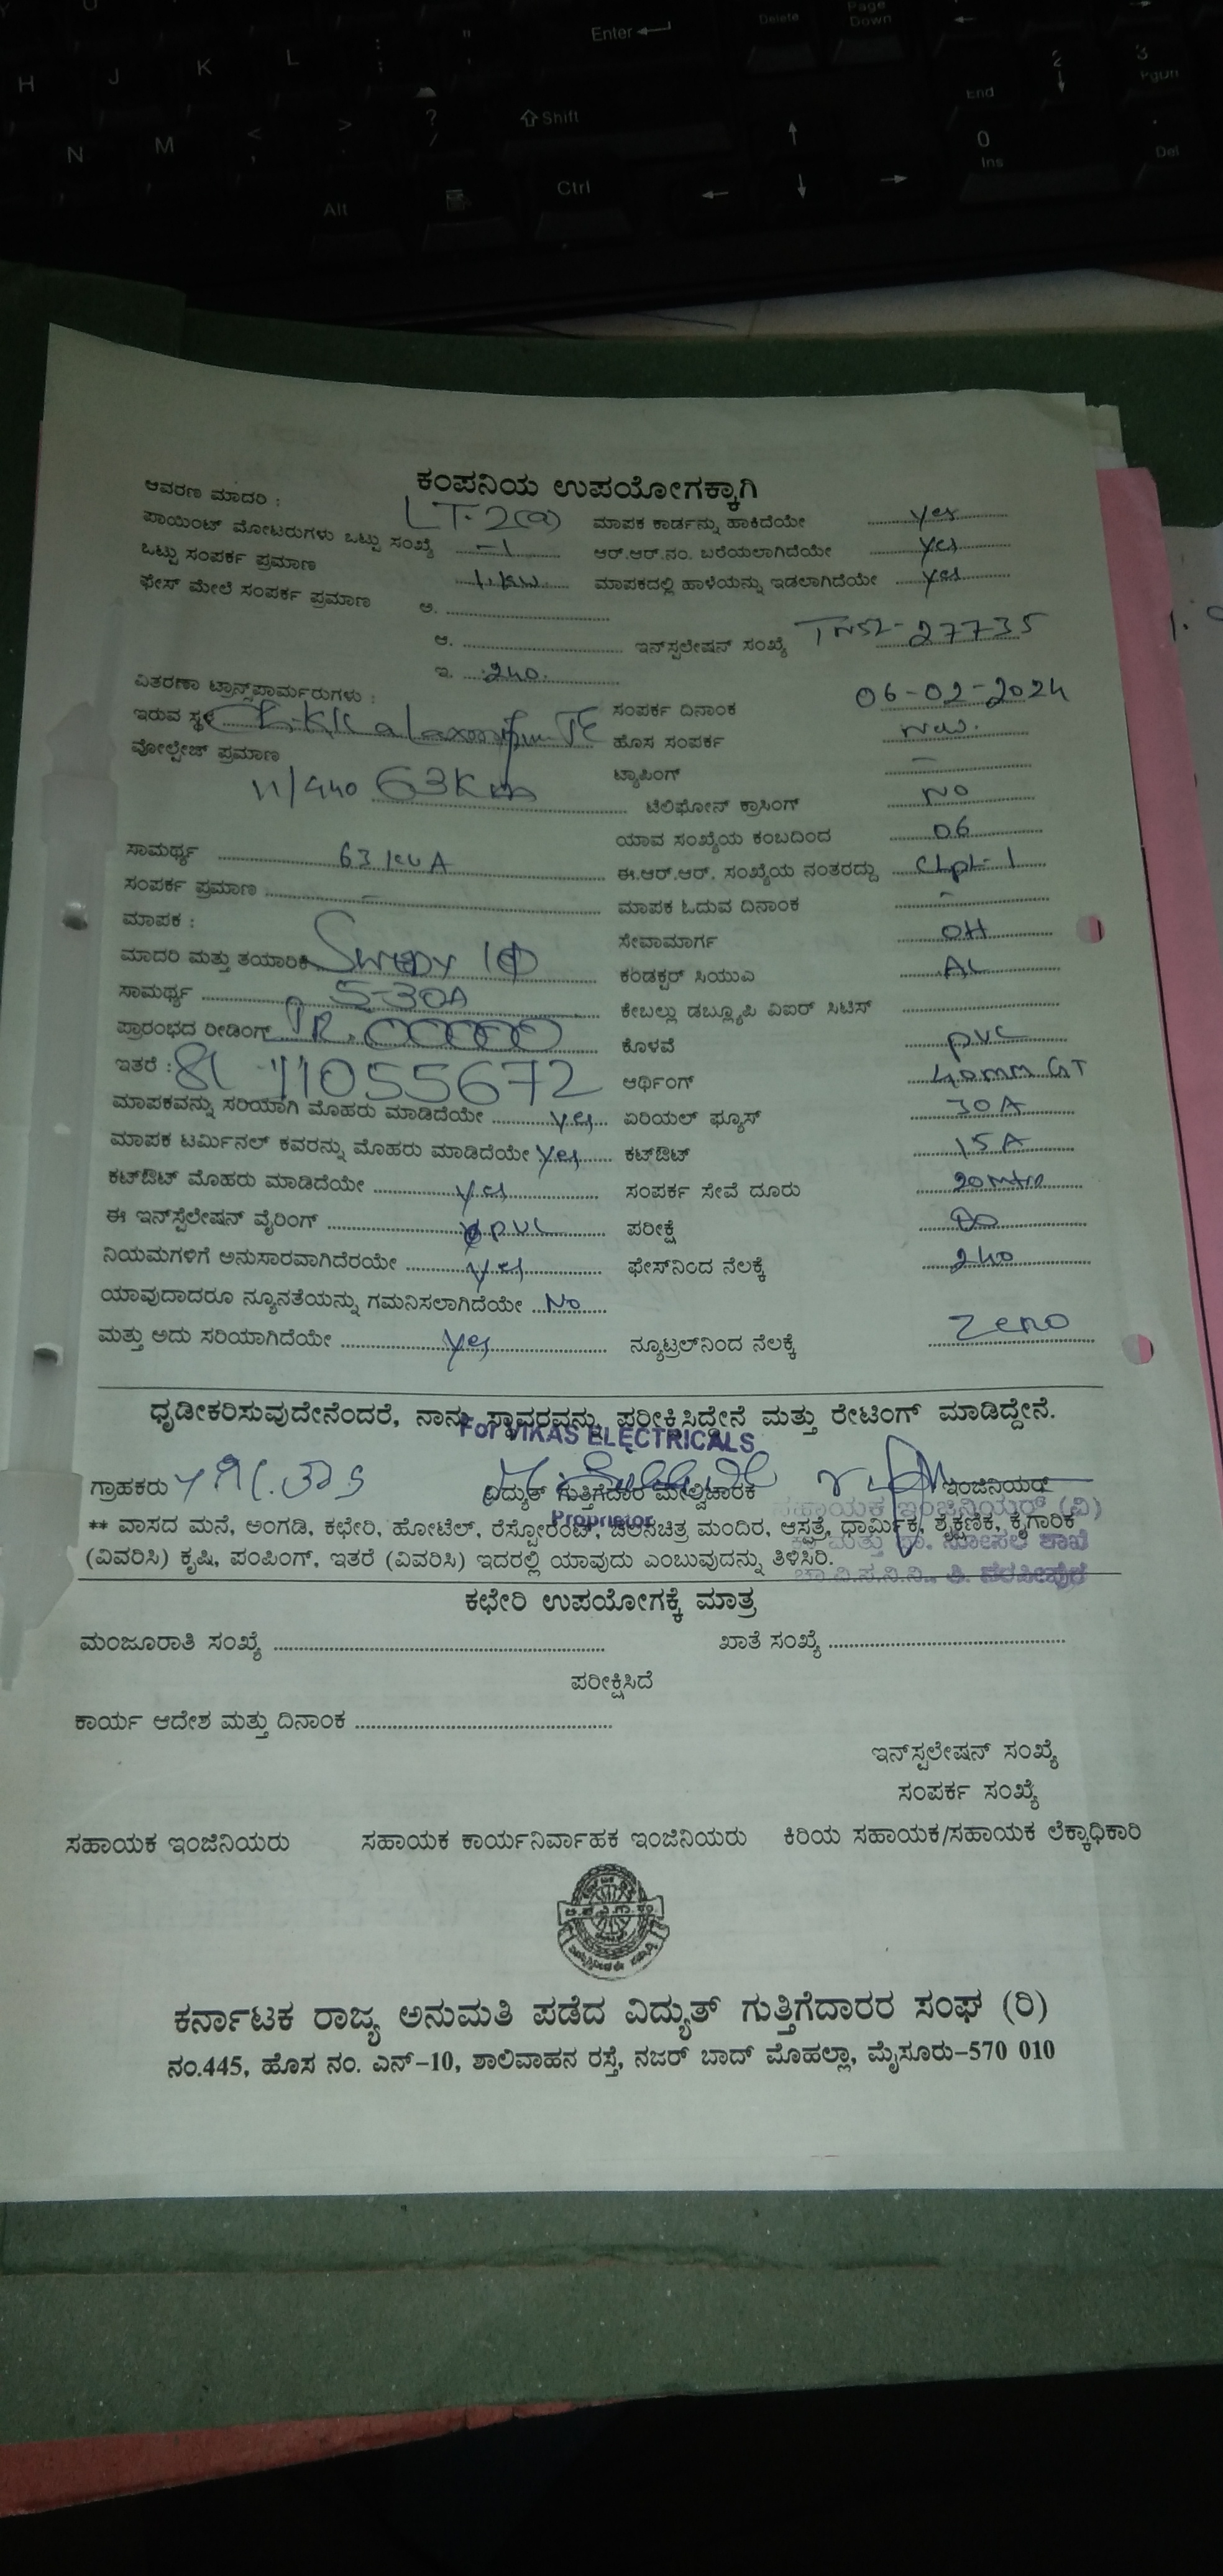 H J K L : ; " ' Enter Delete Page Down
N M < , > . ? / Shift End 2 3 PgDn
Alt Ctrl 0 Ins Del
ಕಂಪನಿಯ ಉಪಯೋಗಕ್ಕಾಗಿ
ಆವರಣ ಮಾದರಿ : LT-2(a) ಮಾಪಕ ಕಾರ್ಡನ್ನು ಹಾಕಿದೆಯೇ yes
ಪಾಯಿಂಟ್ ಮೋಟರುಗಳು ಒಟ್ಟು ಸಂಖ್ಯೆ -1 ಆರ್.ಆರ್.ನಂ. ಬರೆಯಲಾಗಿದೆಯೇ yes
ಒಟ್ಟು ಸಂಪರ್ಕ ಪ್ರಮಾಣ 1.KW ಮಾಪಕದಲ್ಲಿ ಹಾಳೆಯನ್ನು ಇಡಲಾಗಿದೆಯೇ yes
ಫೇಸ್ ಮೇಲೆ ಸಂಪರ್ಕ ಪ್ರಮಾಣ ಅ.
ಆ. ಇನ್‌ಸ್ಟಲೇಷನ್ ಸಂಖ್ಯೆ 27735
ಇ. 240.
ವಿತರಣಾ ಟ್ರಾನ್ಸ್‌ಫಾರ್ಮರುಗಳು : ಸಂಪರ್ಕ ದಿನಾಂಕ 06-02-2024
ಇರುವ ಸ್ಥಳ ಹೊಸ ಸಂಪರ್ಕ New.
ವೋಲ್ಟೇಜ್ ಪ್ರಮಾಣ ಟ್ಯಾಪಿಂಗ್ -
11/440 63 ಟೆಲಿಫೋನ್ ಕ್ರಾಸಿಂಗ್ NO
ಯಾವ ಸಂಖ್ಯೆಯ ಕಂಬದಿಂದ 06
ಸಾಮರ್ಥ್ಯ 63 KVA ಈ.ಆರ್.ಆರ್. ಸಂಖ್ಯೆಯ ನಂತರದ್ದು
ಸಂಪರ್ಕ ಪ್ರಮಾಣ - ಮಾಪಕ ಓದುವ ದಿನಾಂಕ -
ಮಾಪಕ : ಸೇವಾಮಾರ್ಗ OH
ಮಾದರಿ ಮತ್ತು ತಯಾರಿಕೆ ಕಂಡಕ್ಟರ್ ಸಿಯುಎ AL
ಸಾಮರ್ಥ್ಯ 5-30A ಕೇಬಲ್ಲು ಡಬ್ಲ್ಯೂಪಿ ವಿಐಆರ್ ಸಿಟಿಸ್
ಪ್ರಾರಂಭದ ರೀಡಿಂಗ್ IR. 00000 ಕೊಳವೆ PVC
ಇತರೆ : 11055672 ಆರ್ಥಿಂಗ್ 40mm GI
ಮಾಪಕವನ್ನು ಸರಿಯಾಗಿ ಮೊಹರು ಮಾಡಿದೆಯೇ yes ಏರಿಯಲ್ ಫ್ಯೂಸ್ 30A
ಮಾಪಕ ಟರ್ಮಿನಲ್ ಕವರನ್ನು ಮೊಹರು ಮಾಡಿದೆಯೇ yes ಕಟ್‌ಔಟ್ 15A
ಕಟ್‌ಔಟ್ ಮೊಹರು ಮಾಡಿದೆಯೇ yes ಸಂಪರ್ಕ ಸೇವೆ ದೂರು 20
ಈ ಇನ್‌ಸ್ಟೆಲೇಷನ್ ವೈರಿಂಗ್ PVC ಪರೀಕ್ಷೆ
ನಿಯಮಗಳಿಗೆ ಅನುಸಾರವಾಗಿದೆರಯೇ yes ಫೇಸ್‌ನಿಂದ ನೆಲಕ್ಕೆ 240
ಯಾವುದಾದರೂ ನ್ಯೂನತೆಯನ್ನು ಗಮನಿಸಲಾಗಿದೆಯೇ No
ಮತ್ತು ಅದು ಸರಿಯಾಗಿದೆಯೇ yes ನ್ಯೂಟ್ರಲ್‌ನಿಂದ ನೆಲಕ್ಕೆ Zero
ಧೃಡೀಕರಿಸುವುದೇನೆಂದರೆ, ನಾನು ಸ್ಥಾವರವನ್ನು ಪರೀಕ್ಷಿಸಿದ್ದೇನೆ ಮತ್ತು ರೇಟಿಂಗ್ ಮಾಡಿದ್ದೇನೆ.
For VIKAS ELECTRICALS
ಗ್ರಾಹಕರು ವಿದ್ಯುತ್ ಗುತ್ತಿಗೆದಾರ ಮೇಲ್ವಿಚಾರಕ ಇಂಜಿನಿಯರ್
Proprietor ಸಹಾಯಕ ಇಂಜಿನಿಯರ್ (ವಿ)
** ವಾಸದ ಮನೆ, ಅಂಗಡಿ, ಕಛೇರಿ, ಹೋಟೆಲ್, ರೆಸ್ಟೋರೆಂಟ್, ಚಲನಚಿತ್ರ ಮಂದಿರ, ಆಸ್ಪತ್ರೆ, ಧಾರ್ಮಿಕ, ಶೈಕ್ಷಣಿಕ, ಕೈಗಾರಿಕೆ
(ವಿವರಿಸಿ) ಕೃಷಿ, ಪಂಪಿಂಗ್, ಇತರೆ (ವಿವರಿಸಿ) ಇದರಲ್ಲಿ ಯಾವುದು ಎಂಬುವುದನ್ನು ತಿಳಿಸಿರಿ.
ಕಛೇರಿ ಉಪಯೋಗಕ್ಕೆ ಮಾತ್ರ
ಮಂಜೂರಾತಿ ಸಂಖ್ಯೆ ಖಾತೆ ಸಂಖ್ಯೆ
ಪರೀಕ್ಷಿಸಿದೆ
ಕಾರ್ಯ ಆದೇಶ ಮತ್ತು ದಿನಾಂಕ
ಇನ್‌ಸ್ಟಲೇಷನ್ ಸಂಖ್ಯೆ
ಸಂಪರ್ಕ ಸಂಖ್ಯೆ
ಸಹಾಯಕ ಇಂಜಿನಿಯರು ಸಹಾಯಕ ಕಾರ್ಯನಿರ್ವಾಹಕ ಇಂಜಿನಿಯರು ಕಿರಿಯ ಸಹಾಯಕ/ಸಹಾಯಕ ಲೆಕ್ಕಾಧಿಕಾರಿ
ಕರ್ನಾಟಕ ರಾಜ್ಯ ಅನುಮತಿ ಪಡೆದ ವಿದ್ಯುತ್ ಗುತ್ತಿಗೆದಾರರ ಸಂಘ (ರಿ)
ನಂ.445, ಹೊಸ ನಂ. ಎನ್-10, ಶಾಲಿವಾಹನ ರಸ್ತೆ, ನಜರ್ ಬಾದ್ ಮೊಹಲ್ಲಾ, ಮೈಸೂರು-570 010